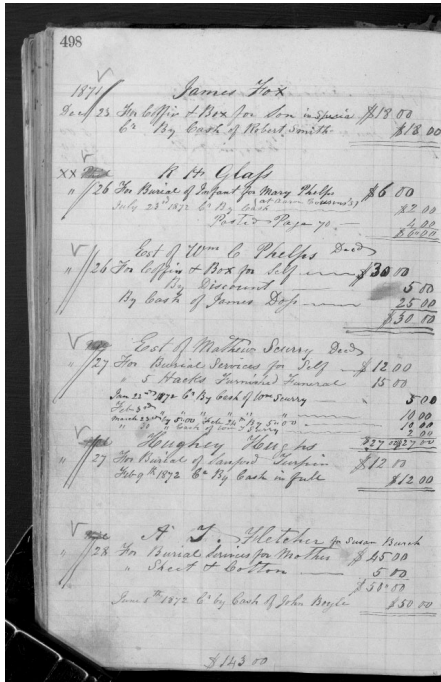 498
1871 James Fox
Dec 23 For Coffin & Box for Son $18 00
Cr By Cash of Robert Smith $18 00
XX R H Glass
" 26 For Burial of Infant for Mary Phelps $6 00
July 23d 1872 Cr By Cash $2 00
Posted Page 70. 4 00
$6 00
Est of Wm C Phelps Decd
" 26 For Coffin & Box for Self $30 00
By Discount 5 00
By Cash of James Doss 25 00
$30 00
Est of Mathew Scurry Decd
" 27 For Burial Services for Self $12 00
" 5 Hacks Furnished Funeral 15 00
Jan 22nd 1872 Cr By Cash of Wm Scurry 5 00
Feb 3rd 10 00
March 23rd By 5.00 " Feb 24th By 5.00 10 00
Cash of Wm Scurry 2 00
$27 00 $27 00
Hughey Hughs
" 27 For Burial of Sanford Turpin $12 00
Feb 9th 1872 Cr By Cash in full $12 00
A T. Fletcher for Susan Burch
" 28 For Burial Services for Mother $45 00
" Sheet & Cotton 5 00
$50 00
June 8th 1872 Cr by Cash of John Boyle $50 00
$143 00